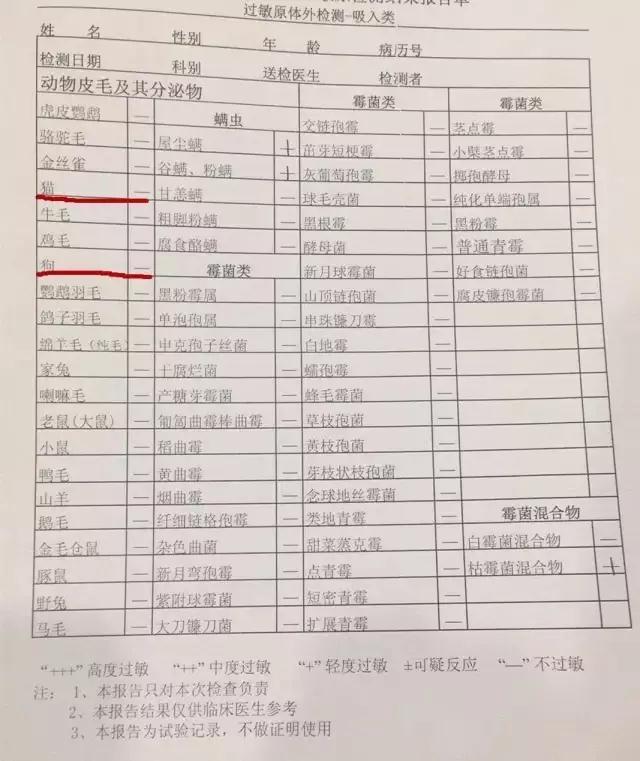 过敏原体外检测-吸入类
姓 名 性别 年 龄 病历号
检测日期 科别 送检医生 检测者
动物皮毛及其分泌物 霉菌类 霉菌类
虎皮鹦鹉 — 螨虫 交链孢霉 — 茎点霉 —
骆驼毛 — 屋尘螨 + 茁芽短梗霉 — 小檗茎点霉 —
金丝雀 — 谷螨、粉螨 + 灰葡萄孢霉 — 掷孢酵母 —
猫 — 甘恙螨 — 球毛壳菌 — 纯化单端孢属 —
牛毛 — 粗脚粉螨 — 黑根霉 — 黑粉霉 —
鸡毛 — 腐食酪螨 — 酵母菌 — 普通青霉 —
狗 — 霉菌类 新月球霉菌 — 好食链孢菌 —
鹦鹉羽毛 — 黑粉霉属 — 山顶链孢菌 — 腐皮镰孢霉菌 —
鸽子羽毛 — 单孢孢属 — 串珠镰刀霉 —
绵羊毛(纯毛) — 申克孢子丝菌 — 白地霉 —
家兔 — 干腐烂菌 — 蠕孢霉 —
喇嘛毛 — 产糖芽霉菌 — 蜂毛霉菌 —
老鼠(大鼠) — 匍匐曲霉棒曲霉 — 草枝孢菌 —
小鼠 — 稻曲霉 — 黄枝孢菌 —
鸭毛 — 黄曲霉 — 芽枝状枝孢菌 —
山羊 — 烟曲霉 — 念球地丝霉菌 —
鹅毛 — 纤细链格孢霉 — 类地青霉 — 霉菌混合物
金毛仓鼠 — 杂色曲菌 — 甜菜蒸克霉 — 白霉菌混合物 —
豚鼠 — 新月弯孢霉 — 点青霉 — 枯霉菌混合物 +
野兔 — 紫附球霉菌 — 短密青霉 —
马毛 — 大刀镰刀菌 — 扩展青霉 —
“+++”高度过敏 “++”中度过敏 “+”轻度过敏 ±可疑反应 “—”不过敏
注: 1、本报告只对本次检查负责
2、本报告结果仅供临床医生参考
3、本报告为试验记录，不做证明使用